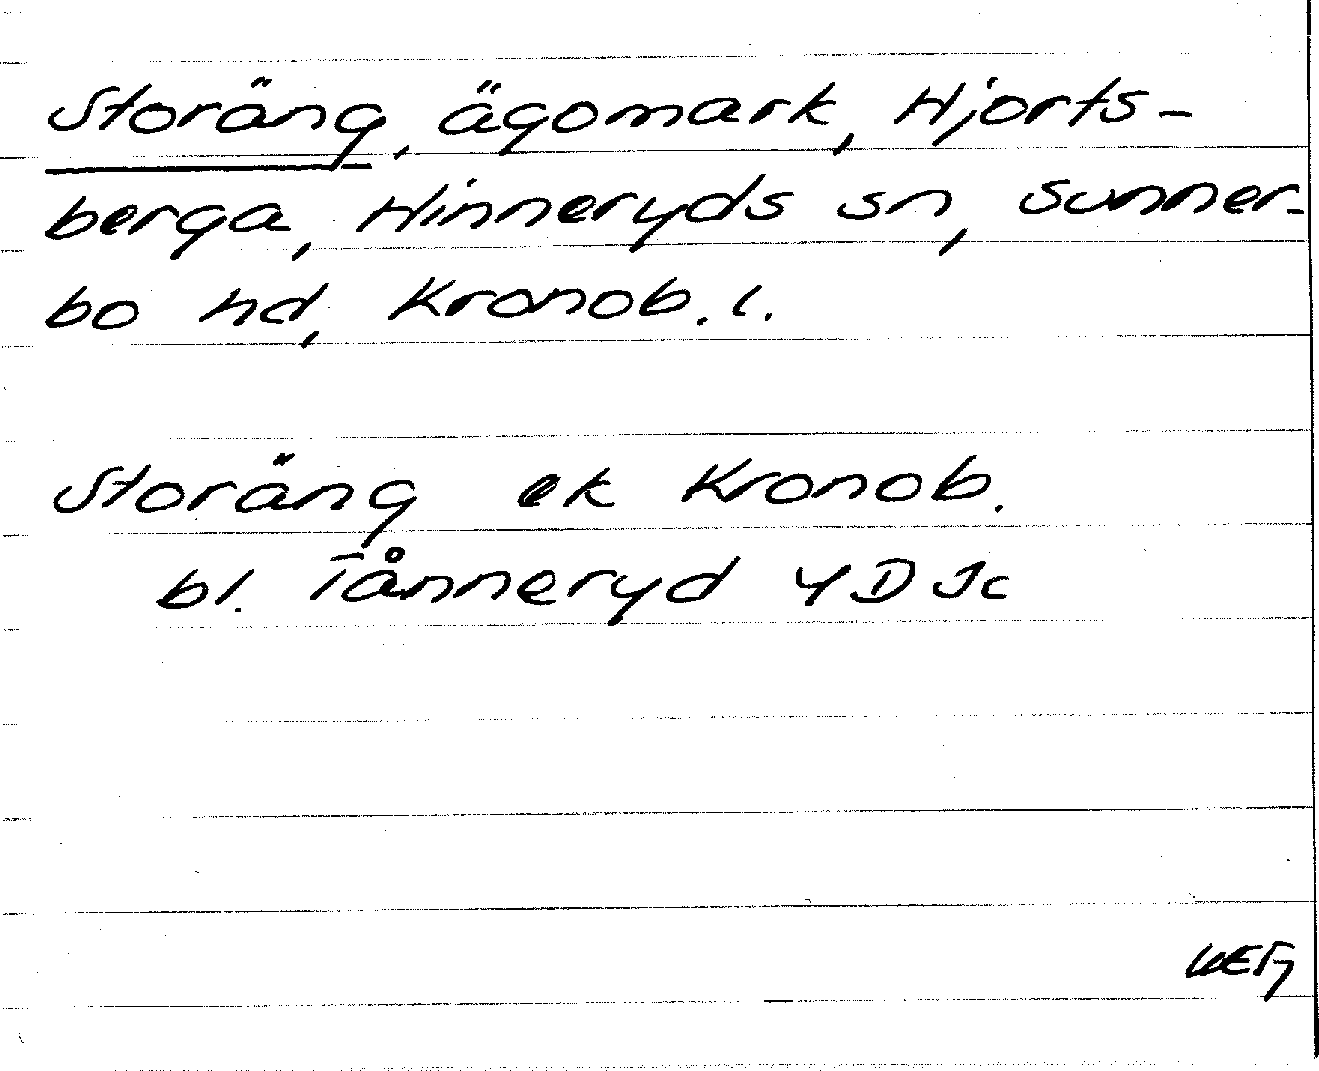 Storäng, ägomark, Hjorts-
berga, Hinneryds sn, Sunner-
bo hd, Kronob. l.
Storäng ek Kronob.
bl. Tånneryd 4D Jc